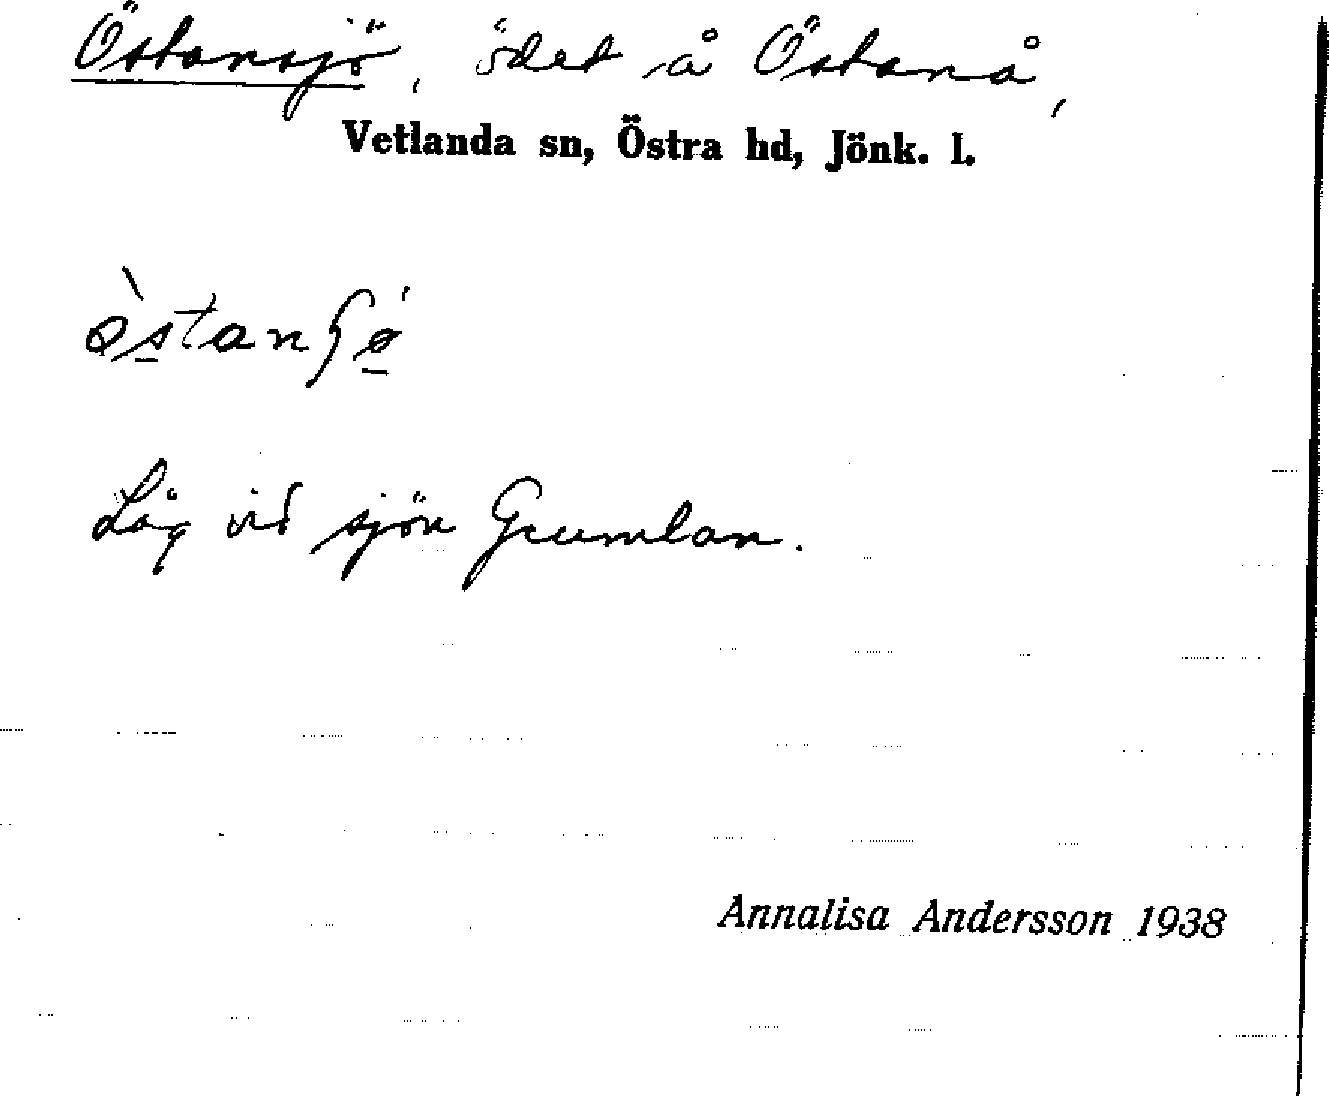 Östansjö, ödet å Östanå,
Vetlanda sn, Östra hd, Jönk. l.
Låg vid sjön Grumlan.
Annalisa Andersson 1938